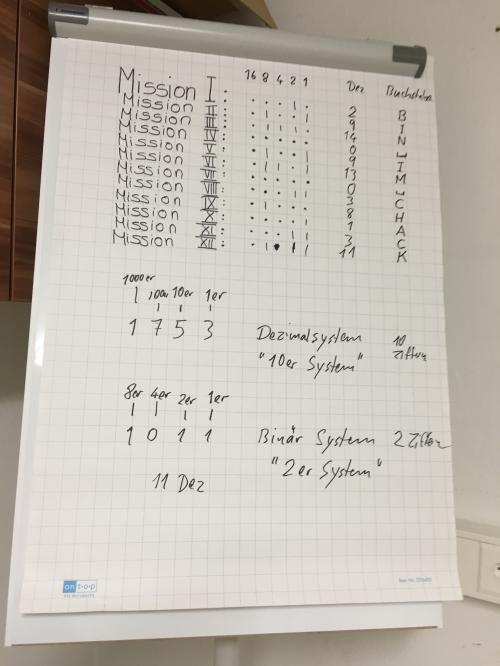 16 8 4 2 1 Dez Buchstabe
Mission I: . . . | . 2 B
Mission II: . | . . | 9 I
Mission III: . | | | . 14 N
Mission IV: . . . . . 0 ⎵
Mission V: . | . . | 9 I
Mission VI: . | | . | 13 M
Mission VII: . . . . . 0 ⎵
Mission VIII: . . . | | 3 C
Mission IX: . | . . . 8 H
Mission X: . . . . | 1 A
Mission XI: . . . | | 3 C
Mission XII: . | . | | 11 K
1000er 100er 10er 1er
1 7 5 3 Dezimalsystem 10 Ziffern
"10er System"
8er 4er 2er 1er
1 0 1 1 Binär System 2 Ziffern
"2er System"
11 Dez
on t·o·p